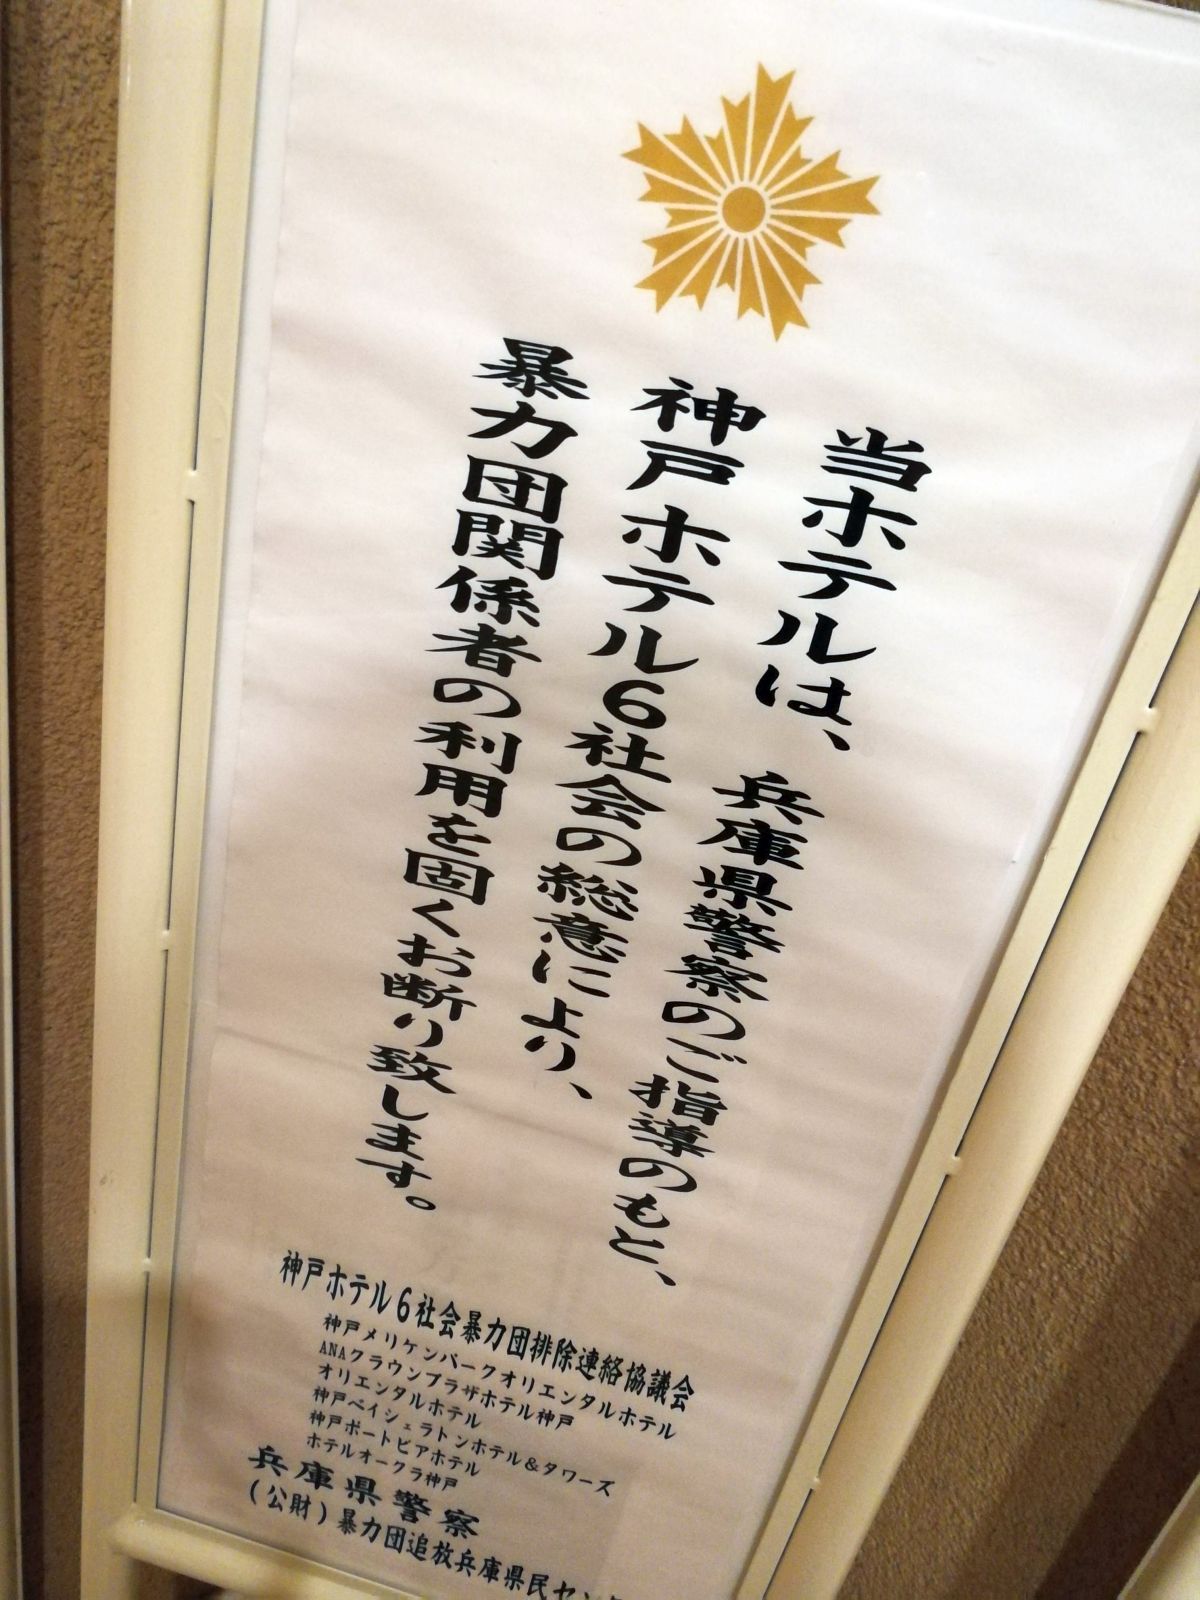 当ホテルは、兵庫県警察のご指導のもと、
神戸ホテル6社会の総意により、
暴力団関係者の利用を固くお断り致します。
神戸ホテル6社会暴力団排除連絡協議会
神戸メリケンパークオリエンタルホテル
ANAクラウンプラザホテル神戸
オリエンタルホテル
神戸ベイシェラトンホテル&タワーズ
神戸ポートピアホテル
ホテルオークラ神戸
兵庫県警察
(公財)暴力団追放兵庫県民セン